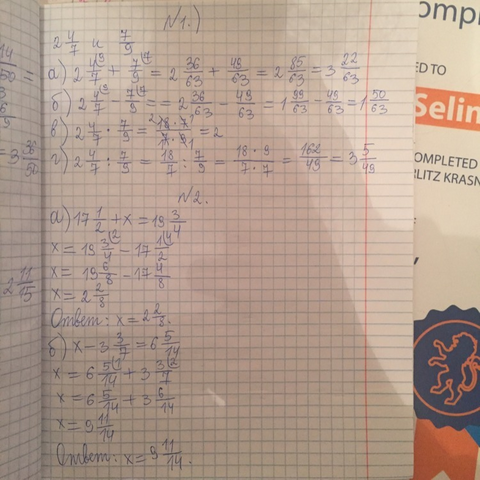 N1.)
2 4/7 и 7/9
а) 2 4/7 + 7/9 = 2 36/63 + 49/63 = 2 85/63 = 3 22/63
б) 2 4/7 - 7/9 = = 2 36/63 - 49/63 = 1 99/63 - 49/63 = 1 50/63
в) 2 4/7 · 7/9 = 18 · 7 / 7 · 9 = 2
г) 2 4/7 : 7/9 = 18/7 : 7/9 = 18 · 9 / 7 · 7 = 162/49 = 3 5/49
N2.
а) 17 1/2 + x = 19 3/4
x = 19 3/4 - 17 1/2
x = 19 6/8 - 17 4/8
x = 2 2/8
Ответ: x = 2 2/8.
б) x - 3 3/7 = 6 5/14
x = 6 5/14 + 3 3/7
x = 6 5/14 + 3 6/14
x = 9 11/14
Ответ: x = 9 11/14.
14/50 =
= 3 36/50
2 11/15
ompl
ED TO
Selin
OMPLETED
RLITZ KRASN